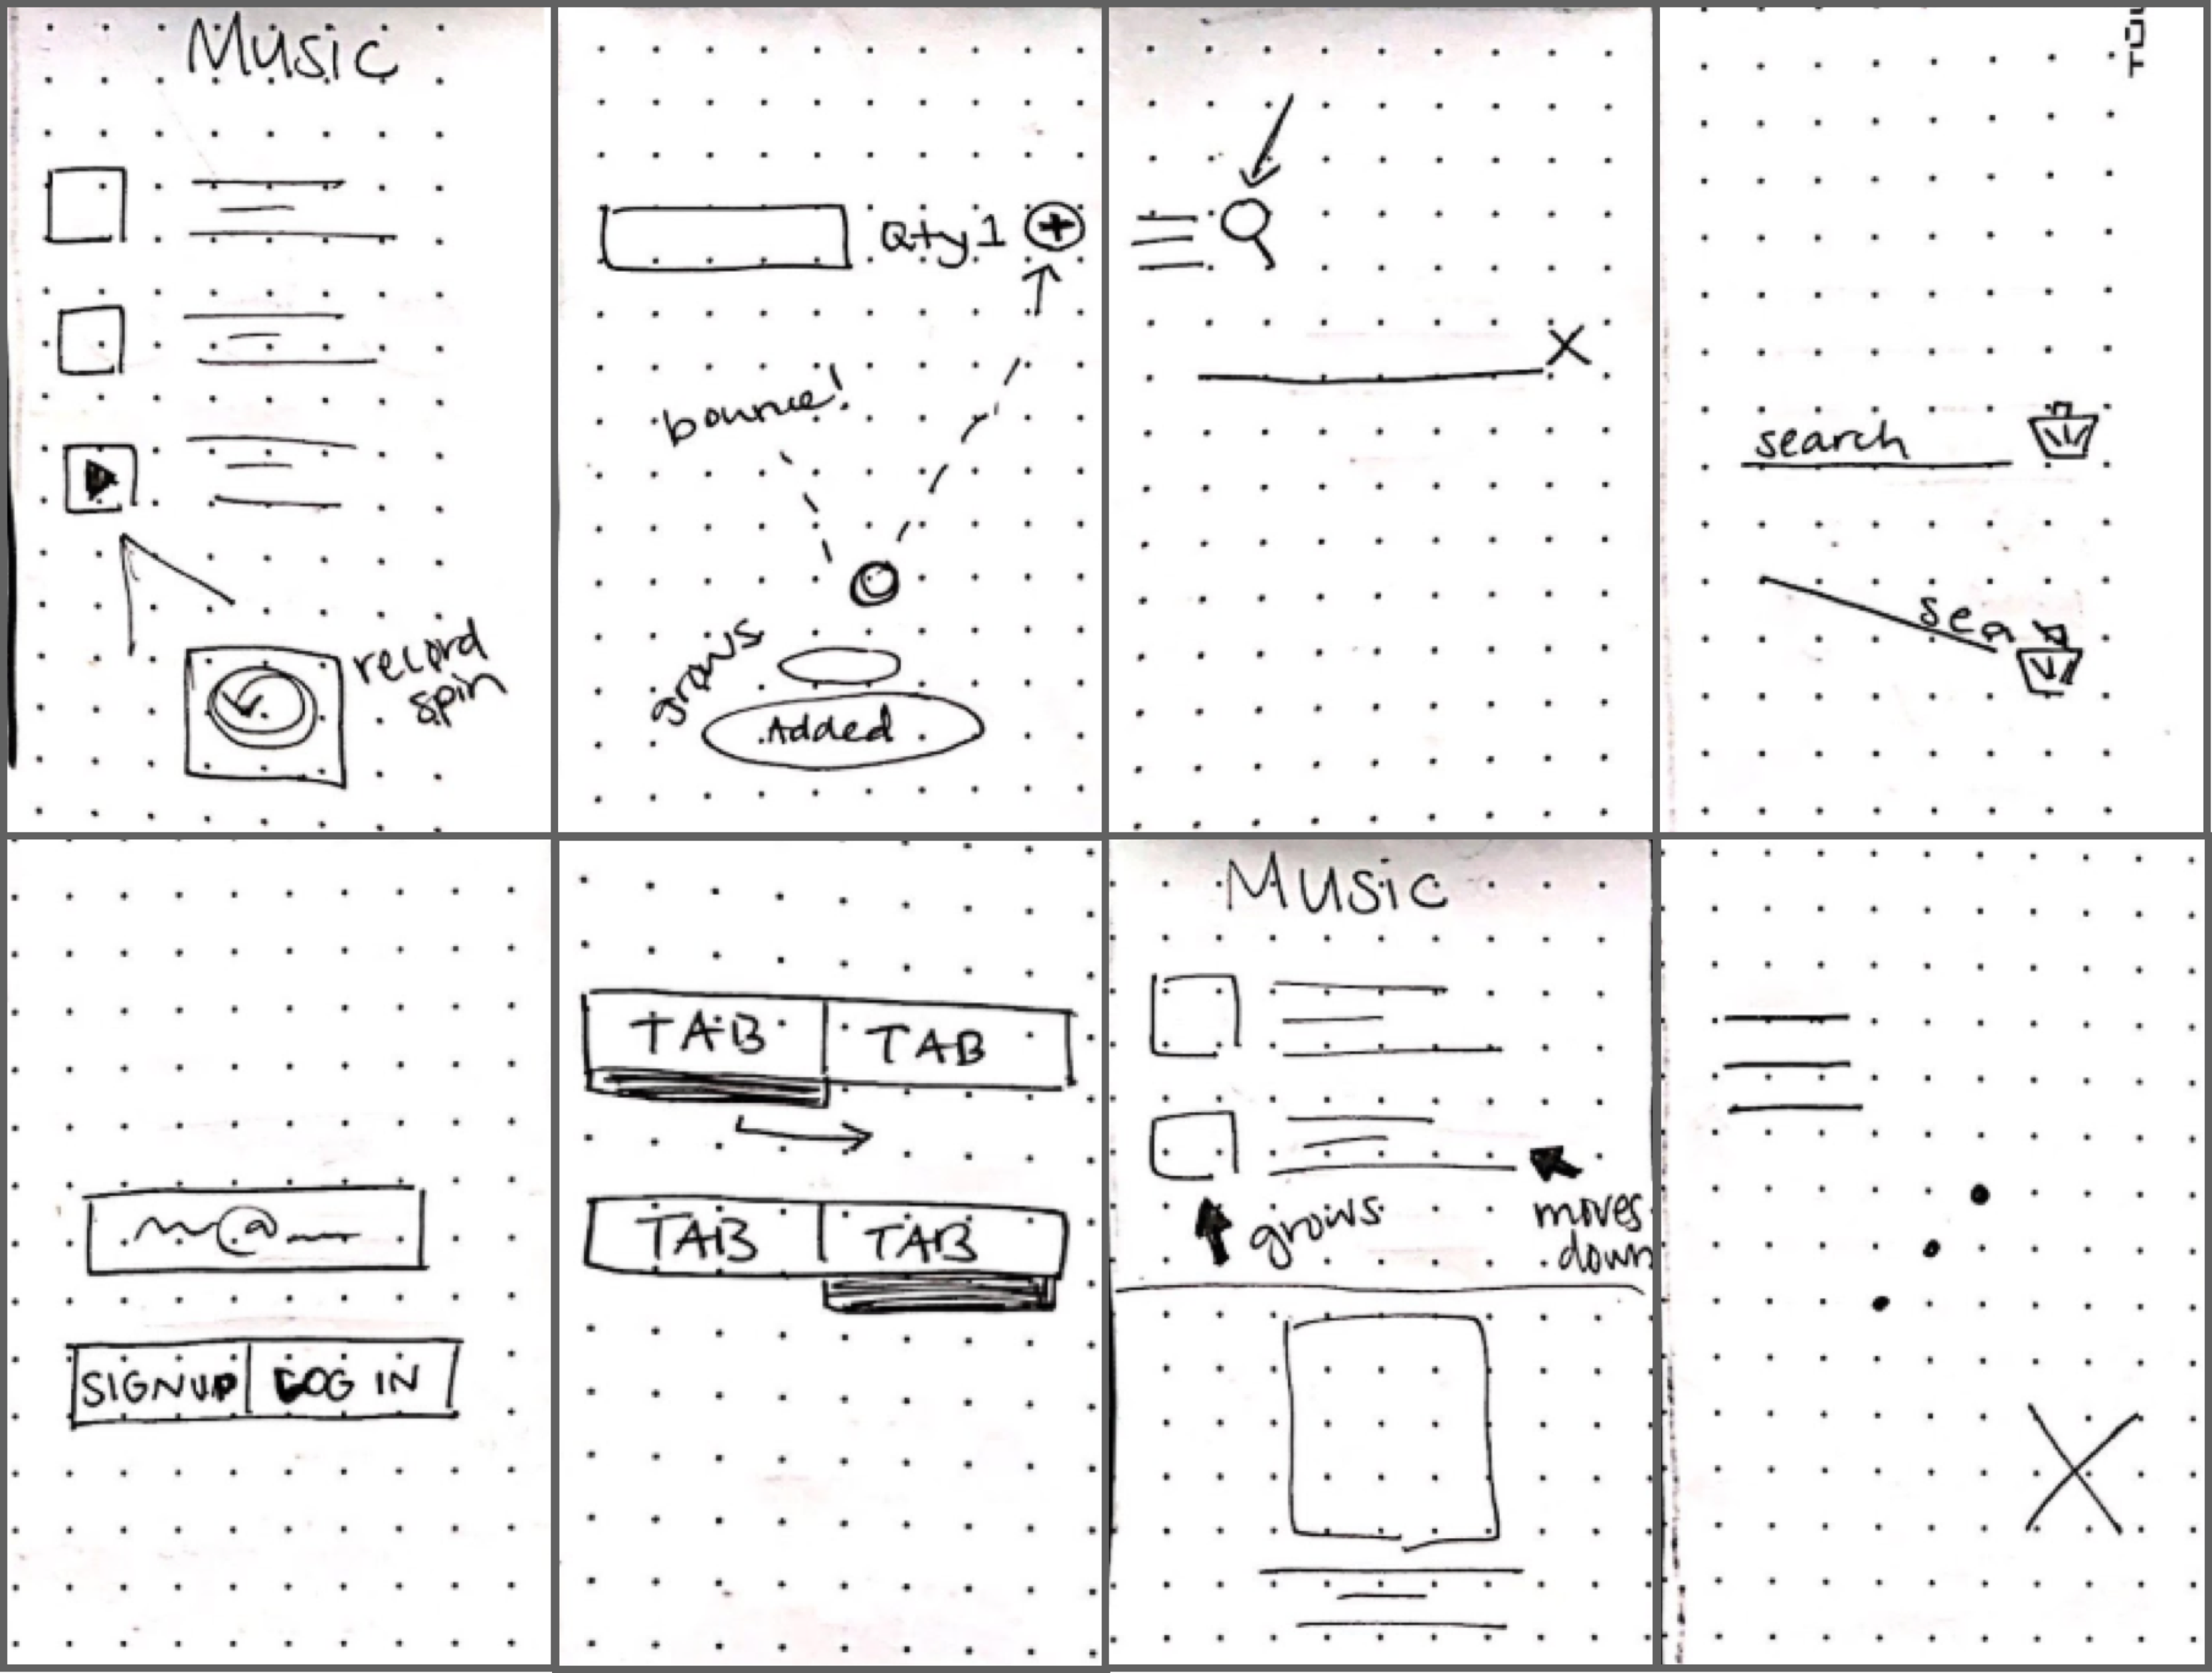 Music
record
spin
Qty 1
bounce!
grows
Added
search
sea
SIGNUP LOG IN
TAB TAB
TAB TAB
Music
grows
moves
down